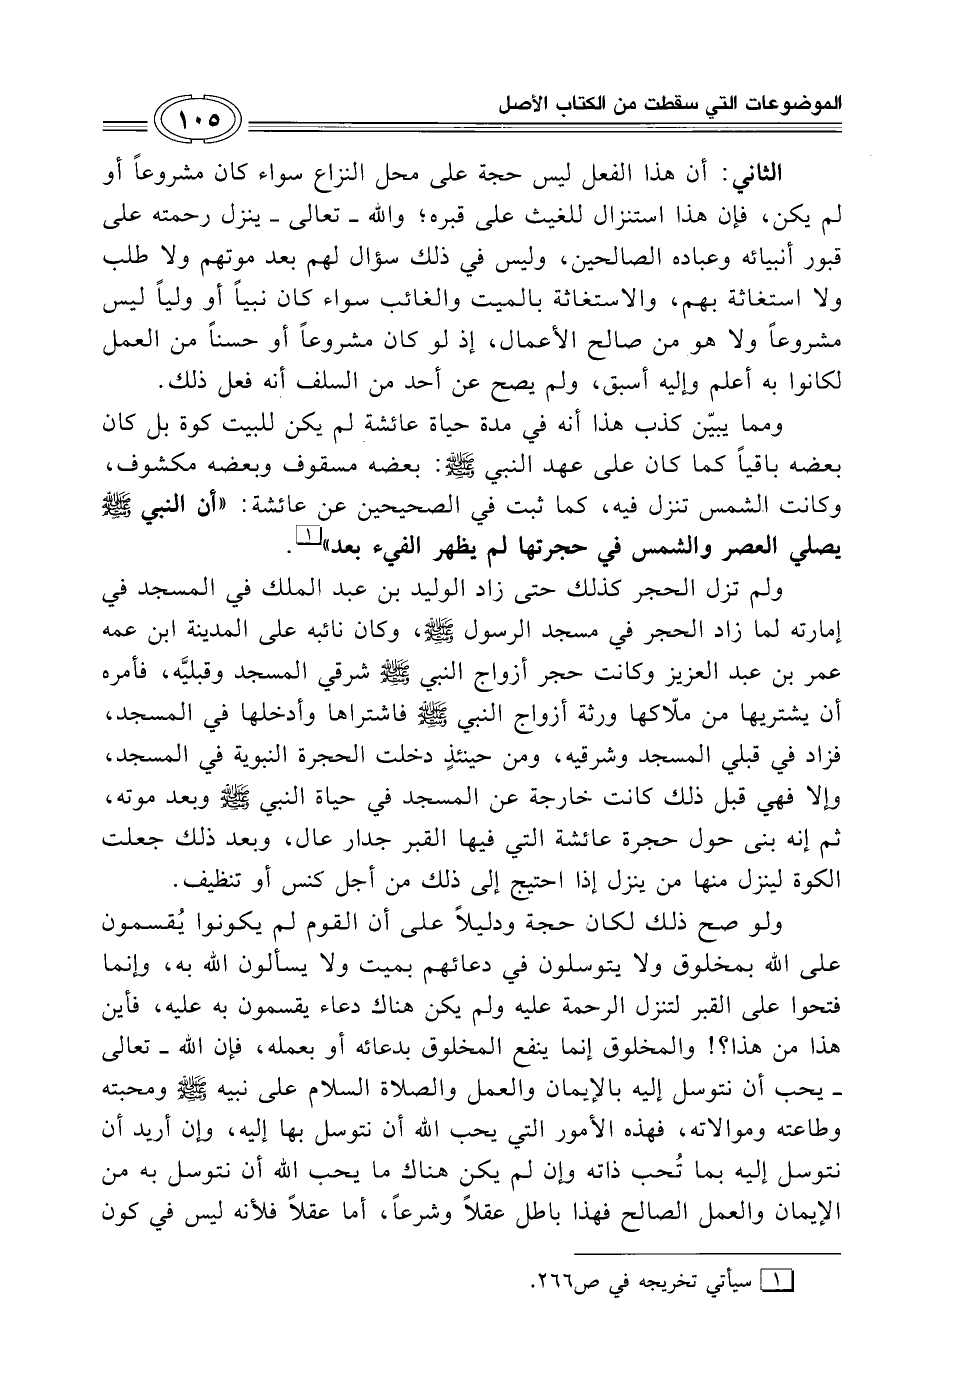 الموضوعات التي سقطت من الكتاب الأصل
١٠٥
الثاني: أن هذا الفعل ليس حجة على محل النزاع سواء كان مشروعاً أو
لم يكن، فإن هذا استنزال للغيث على قبره؛ والله ـ تعالى ـ ينزل رحمته على
قبور أنبيائه وعباده الصالحين، وليس في ذلك سؤال لهم بعد موتهم ولا طلب
ولا استغاثة بهم، والاستغاثة بالميت والغائب سواء كان نبياً أو ولياً ليس
مشروعاً ولا هو من صالح الأعمال، إذ لو كان مشروعاً أو حسناً من العمل
لكانوا به أعلم وإليه أسبق، ولم يصح عن أحد من السلف أنه فعل ذلك.
ومما يبيّن كذب هذا أنه في مدة حياة عائشة لم يكن للبيت كوة بل كان
بعضه باقياً كما كان على عهد النبي ﷺ: بعضه مسقوف وبعضه مكشوف،
وكانت الشمس تنزل فيه، كما ثبت في الصحيحين عن عائشة: «أن النبي ﷺ
يصلي العصر والشمس في حجرتها لم يظهر الفيء بعد»١.
ولم تزل الحجر كذلك حتى زاد الوليد بن عبد الملك في المسجد في
إمارته لما زاد الحجر في مسجد الرسول ﷺ، وكان نائبه على المدينة ابن عمه
عمر بن عبد العزيز وكانت حجر أزواج النبي ﷺ شرقي المسجد وقبليَّه، فأمره
أن يشتريها من ملّاكها ورثة أزواج النبي ﷺ فاشتراها وأدخلها في المسجد،
فزاد في قبلي المسجد وشرقيه، ومن حينئذٍ دخلت الحجرة النبوية في المسجد،
وإلا فهي قبل ذلك كانت خارجة عن المسجد في حياة النبي ﷺ وبعد موته،
ثم إنه بنى حول حجرة عائشة التي فيها القبر جدار عال، وبعد ذلك جعلت
الكوة لينزل منها من ينزل إذا احتيج إلى ذلك من أجل كنس أو تنظيف.
ولو صح ذلك لكان حجة ودليلاً على أن القوم لم يكونوا يُقسمون
على الله بمخلوق ولا يتوسلون في دعائهم بميت ولا يسألون الله به، وإنما
فتحوا على القبر لتنزل الرحمة عليه ولم يكن هناك دعاء يقسمون به عليه، فأين
هذا من هذا؟! والمخلوق إنما ينفع المخلوق بدعائه أو بعمله، فإن الله ـ تعالى
ـ يحب أن نتوسل إليه بالإيمان والعمل والصلاة السلام على نبيه ﷺ ومحبته
وطاعته وموالاته، فهذه الأمور التي يحب الله أن نتوسل بها إليه، وإن أريد أن
نتوسل إليه بما تُحب ذاته وإن لم يكن هناك ما يحب الله أن نتوسل به من
الإيمان والعمل الصالح فهذا باطل عقلاً وشرعاً، أما عقلاً فلأنه ليس في كون
١ سيأتي تخريجه في ص٢٦٦.